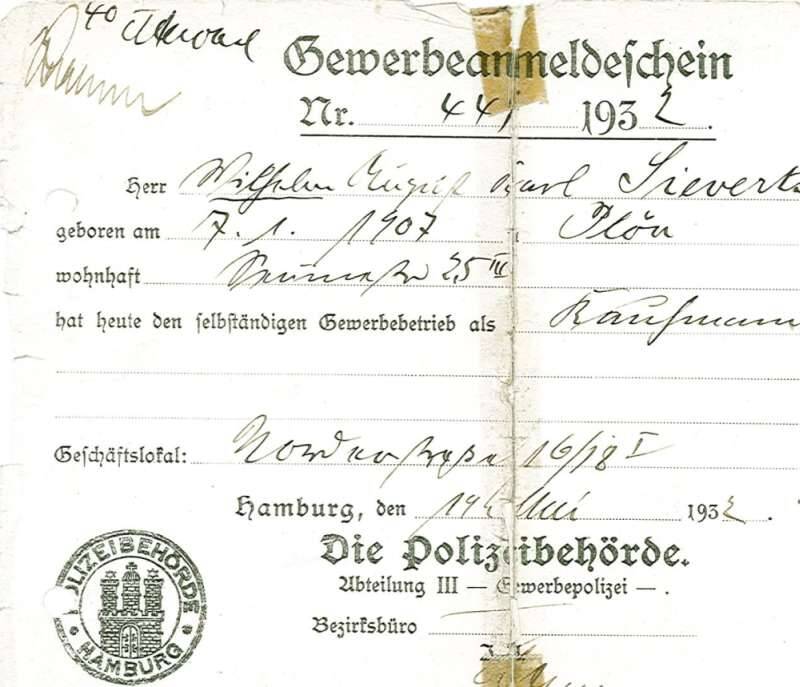 40
Gewerbeanmeldeschein
Nr. 44 1932.
Herr Wilhelm August Karl Sievert
geboren am 7. 1. 1907 Plön
wohnhaft 25 III
hat heute den selbständigen Gewerbebetrieb als Kaufmann
Geschäftslokal: Norderstraße 16/18 I
Hamburg, den 14. Mai 1932.
Die Polizeibehörde.
Abteilung III — Gewerbepolizei —.
Bezirksbüro
POLIZEIBEHÖRDE
HAMBURG